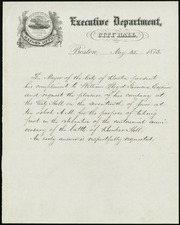 Executive Department,
CITY HALL.
Boston, May 22, 1875.
The Mayor of the City of Boston presents
his compliments to William Lloyd Garrison Esquire
and requests the pleasure of his company at
the City Hall on the seventeenth of June at
ten o'clock A.M. for the purpose of taking
part in the celebration of the centennial anni-
versary of the battle of Bunker Hill.
An early answer is respectfully requested.